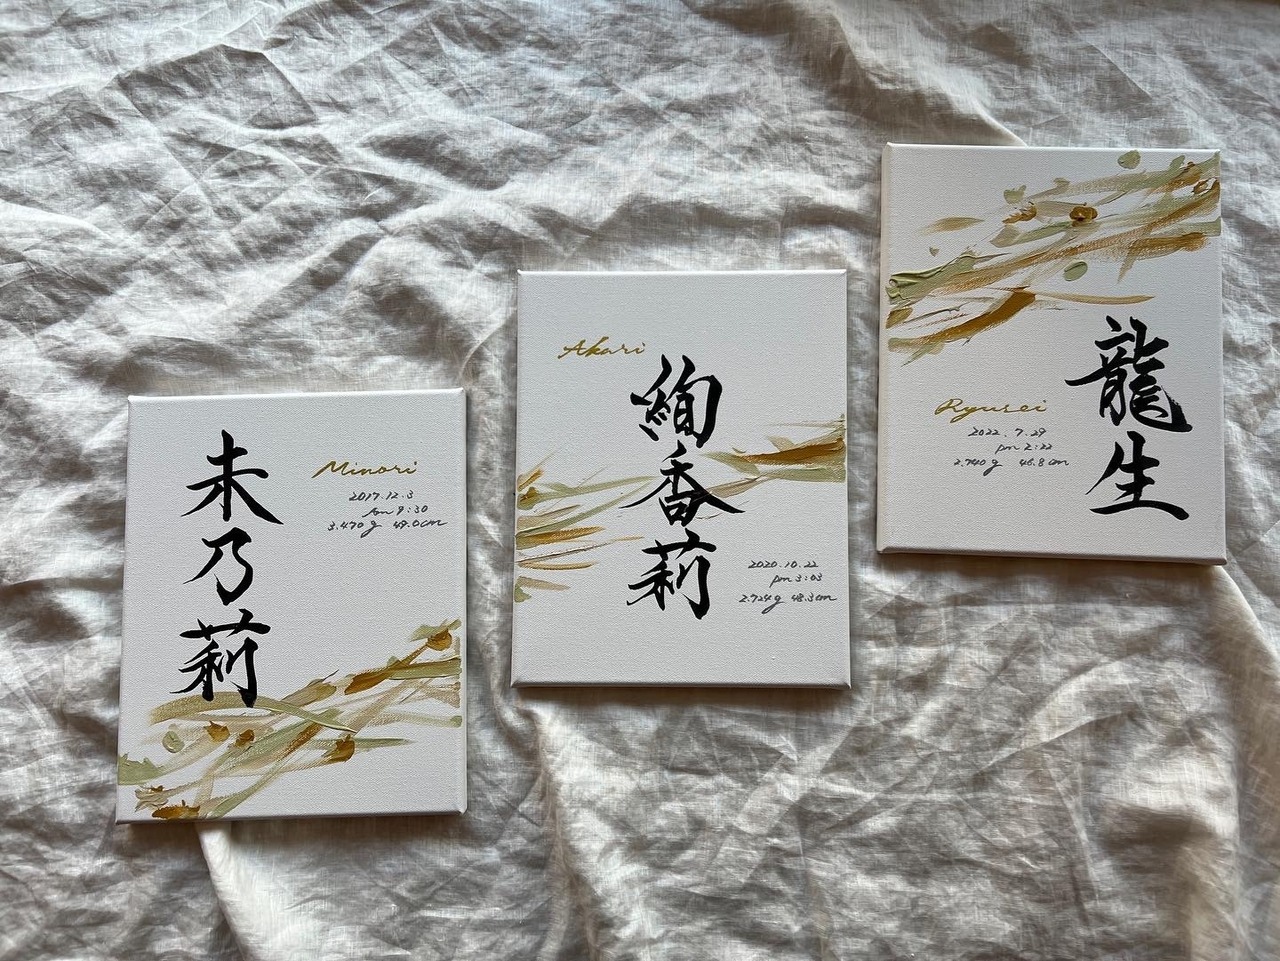 未乃莉
Minori
2017.12.3
Am 9:30
3.470g 49.0cm
Akari
絢香莉
2020.10.22
pm 3:03
2.724g 48.3cm
龍生
Ryusei
2022.7.29
pm 2:22
2.740g 46.8cm